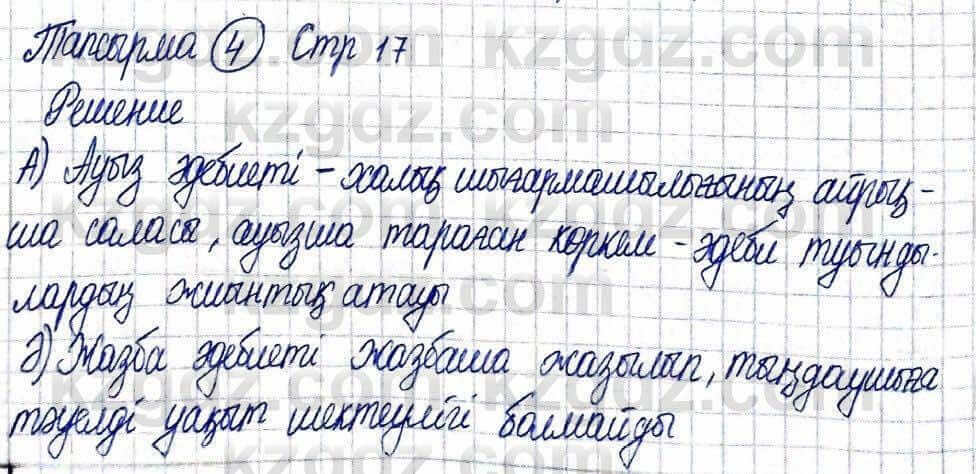 Тапсырма 4 Стр 17
Решение
А) Ауыз әдебиеті - халық шығармашылығының айрық-
ша саласы, ауызша тараған көркем - әдеби туынды-
лардың жиынтық атауы
Ә) Жазба әдебиеті жазбаша жазылып, тыңдаушыға
тәуелді уақыт шектеулігі болмайды
kzgdz.com